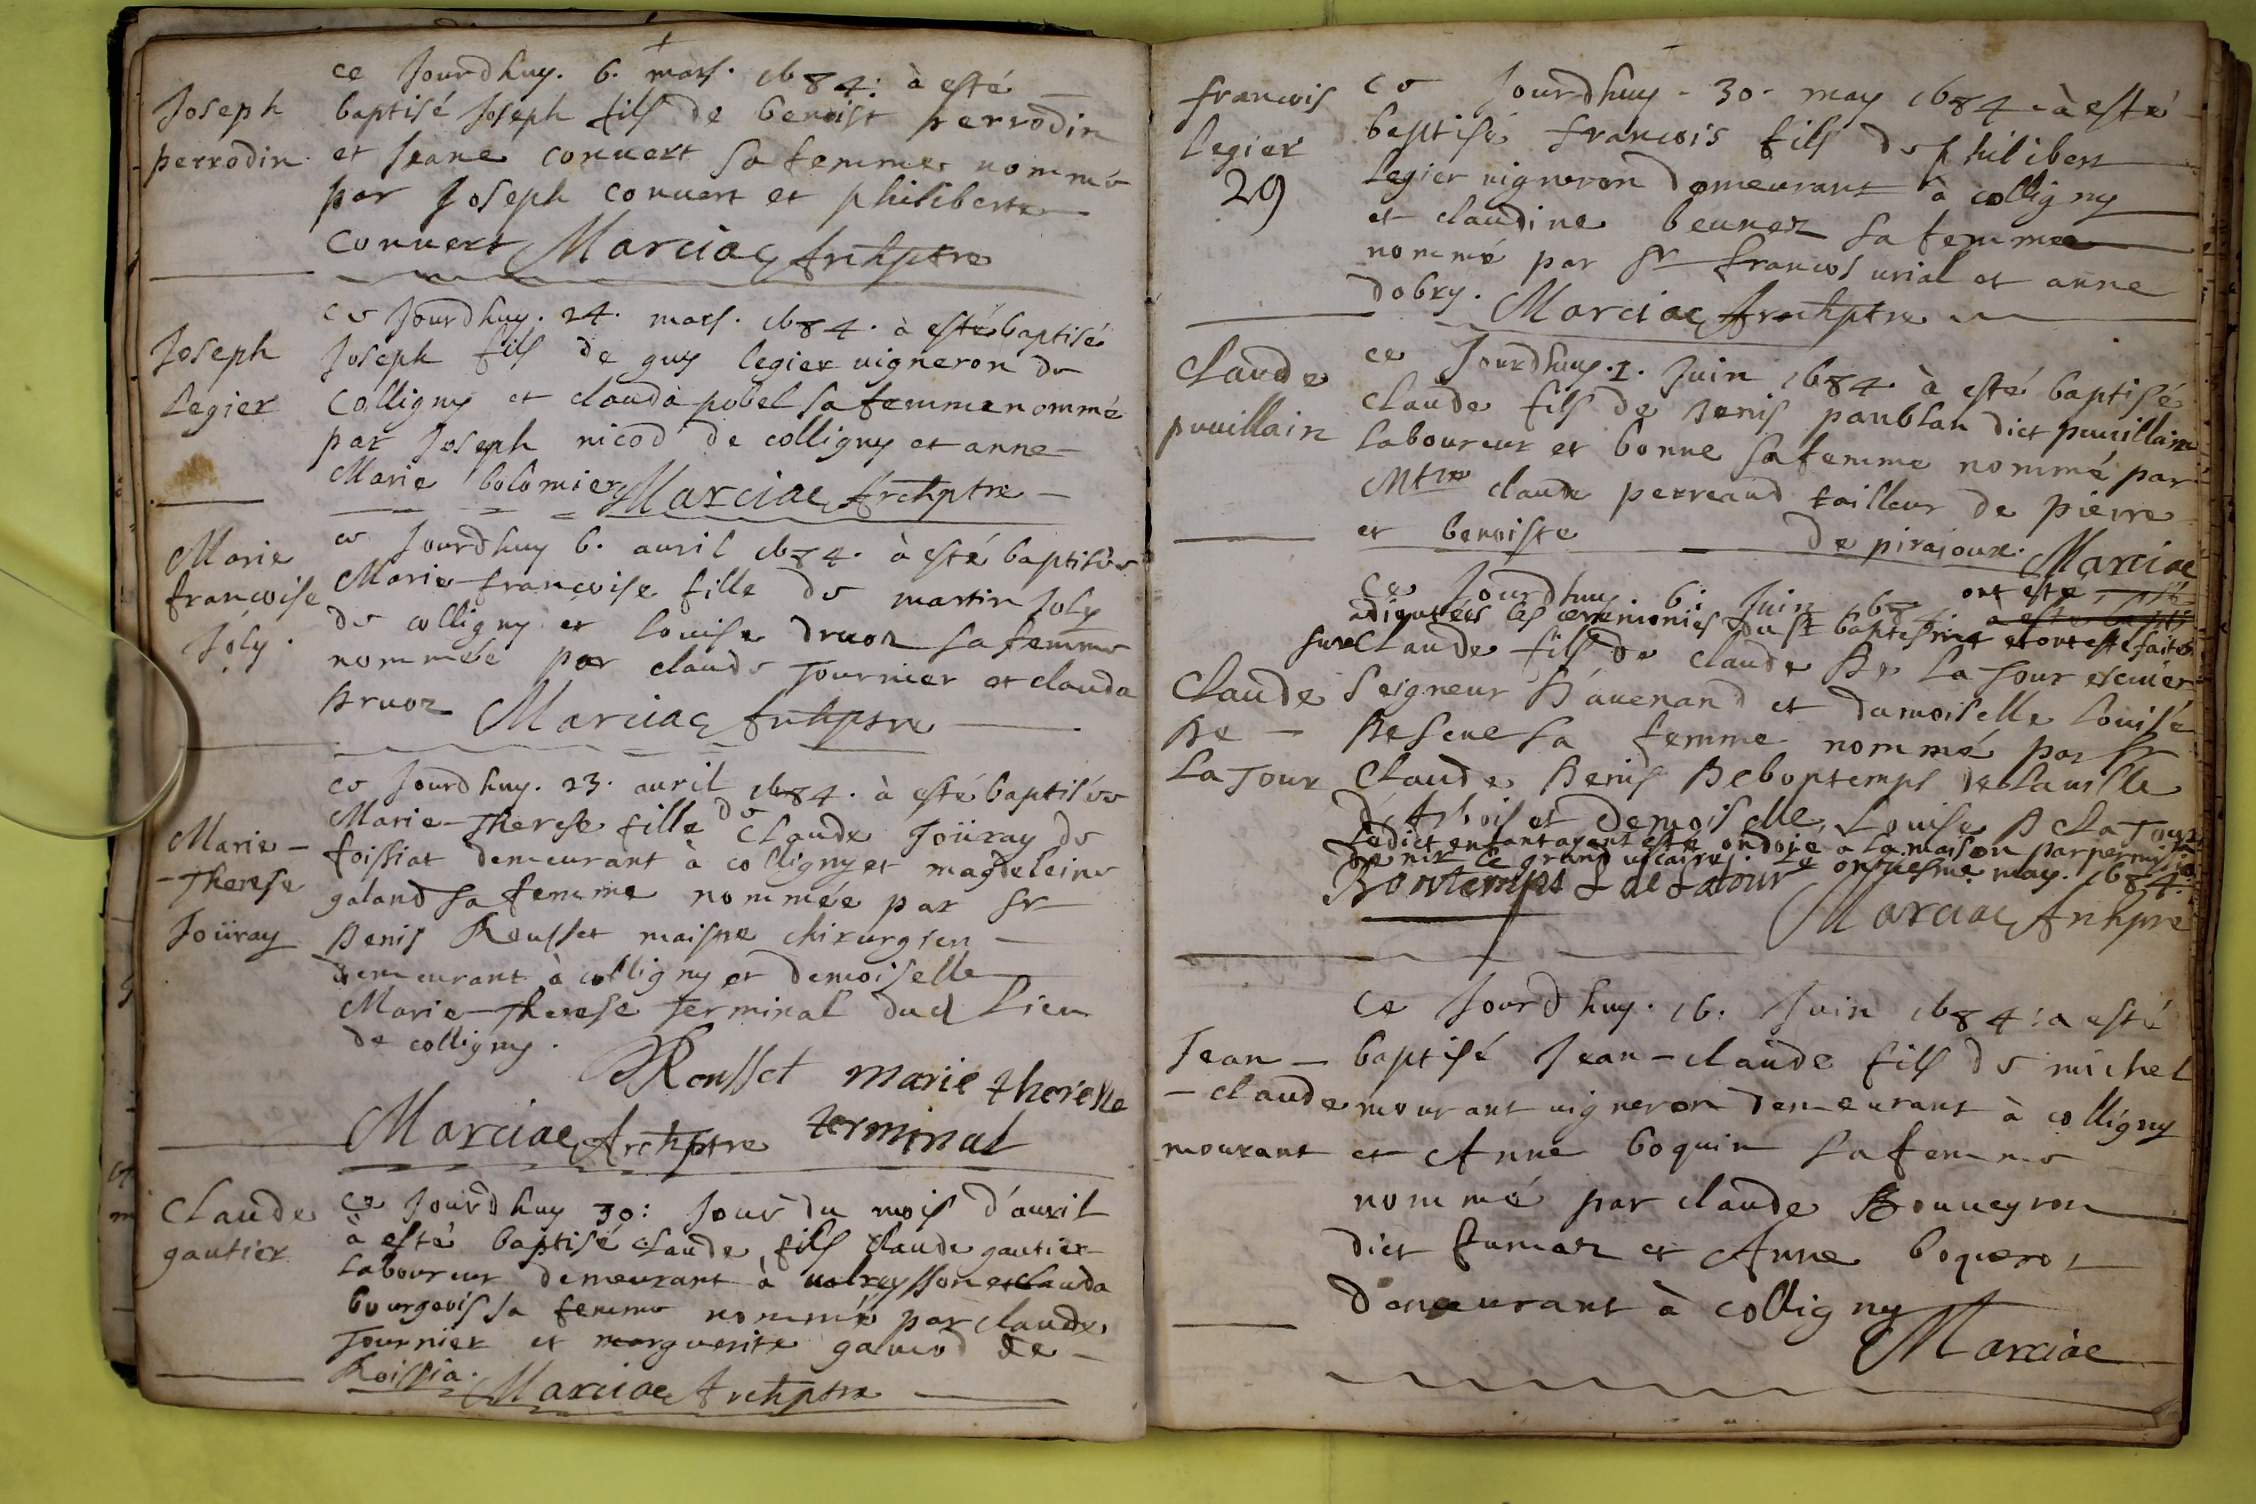 Joseph
perrodin
ce Jourdhuy. 6. mars. 1684: à esté
baptisé Joseph fils de benoist perrodin
et Jeane convert sa femme nommé
par Joseph convert et philiberte
convert Marciac Archptre
Joseph
Legier
ce Jourdhuy. 24. mars. 1684. à esté baptisé
Joseph fils de guy legier vigneron de
Colligny et claudà pobel sa femme nommé
par Joseph nicod de colligny et anne
Marie bolomier Marciac Archptre
Marie
francoise
Joly.
ce Jourdhuy 6. auril 1684. à esté baptisée
Marie-francoise fille de martin Joly
de colligny et Louise druoz sa femme
nommée par claude Tournier et clauda
druoz Marciac Archptre
Marie-
-Therese
Joüray
ce Jourdhuy. 23. auril 1684. à esté baptisée
Marie-Therese fille de Claude Joüray de
foissiat demeurant à colligny et magdeleine
galand sa femme nommée par Sr
Denis Rousset maistre chirurgien
demeurant à colligny et demoiselle
Marie-Therese Terminal dud Lieu
de colligny.
Rousset marie therese
terminal
Marciac Archptre
Claude
gautier
ce Jourdhuy 30: Jour du mois d'auril
à esté baptisé claude fils claude gautier
Laboureur demeurant à valreysson et clauda
bourgeois sa femme nommé par claude
Tournier et marguerite gauiod de
Roissia. Marciac Archptre
francois
Legier
29
ce Jourdhuy. 30. may 1684. à esté
baptisé francois fils de philibert
Legier vigneron demeurant à colligny
et claudine beunez sa femme
nommé par Sr francois urial et anne
dobry. Marciac Archptre
Claude
puuillain
ce Jourdhuy. 1. Juin 1684 à esté baptisé
Claude fils de Denis panblan dict puuillain
Laboureur et bonne sa femme nommé par
Mtre claude perreaud tailleur de pierre
et benoiste de pirajoux. Marciac
Claude
De
La Tour
ce Jourdhuy. 6: Juin 1684 ont esté
adioutées les ceremonies du St baptesme et ont esté faites
sur Claude fils de Claude De La Tour escuier
Seigneur D'auenand et damoiselle Louise
De seue sa femme nommé par Sr
Claude Denis De bontemps de La uille
d'Arbois et Demoiselle Louise De La Tour
Ledict enfant ayant esté ondoié a La maison par permission
de mr le grand uicaire. Le onziesme may. 1684.
Bontemps L de Latour
Marciac Arhpre
Jean-
-claude
mourant
Ce Jourdhuy. 16. Juin 1684: a esté
baptisé Jean-claude fils de michel
mourant vigneron demeurant à colligny
et Anne boquin sa femme
nommé par claude Bouueyron
dict fumaz et Anne boqueros
demeurant à colligny
Marciac